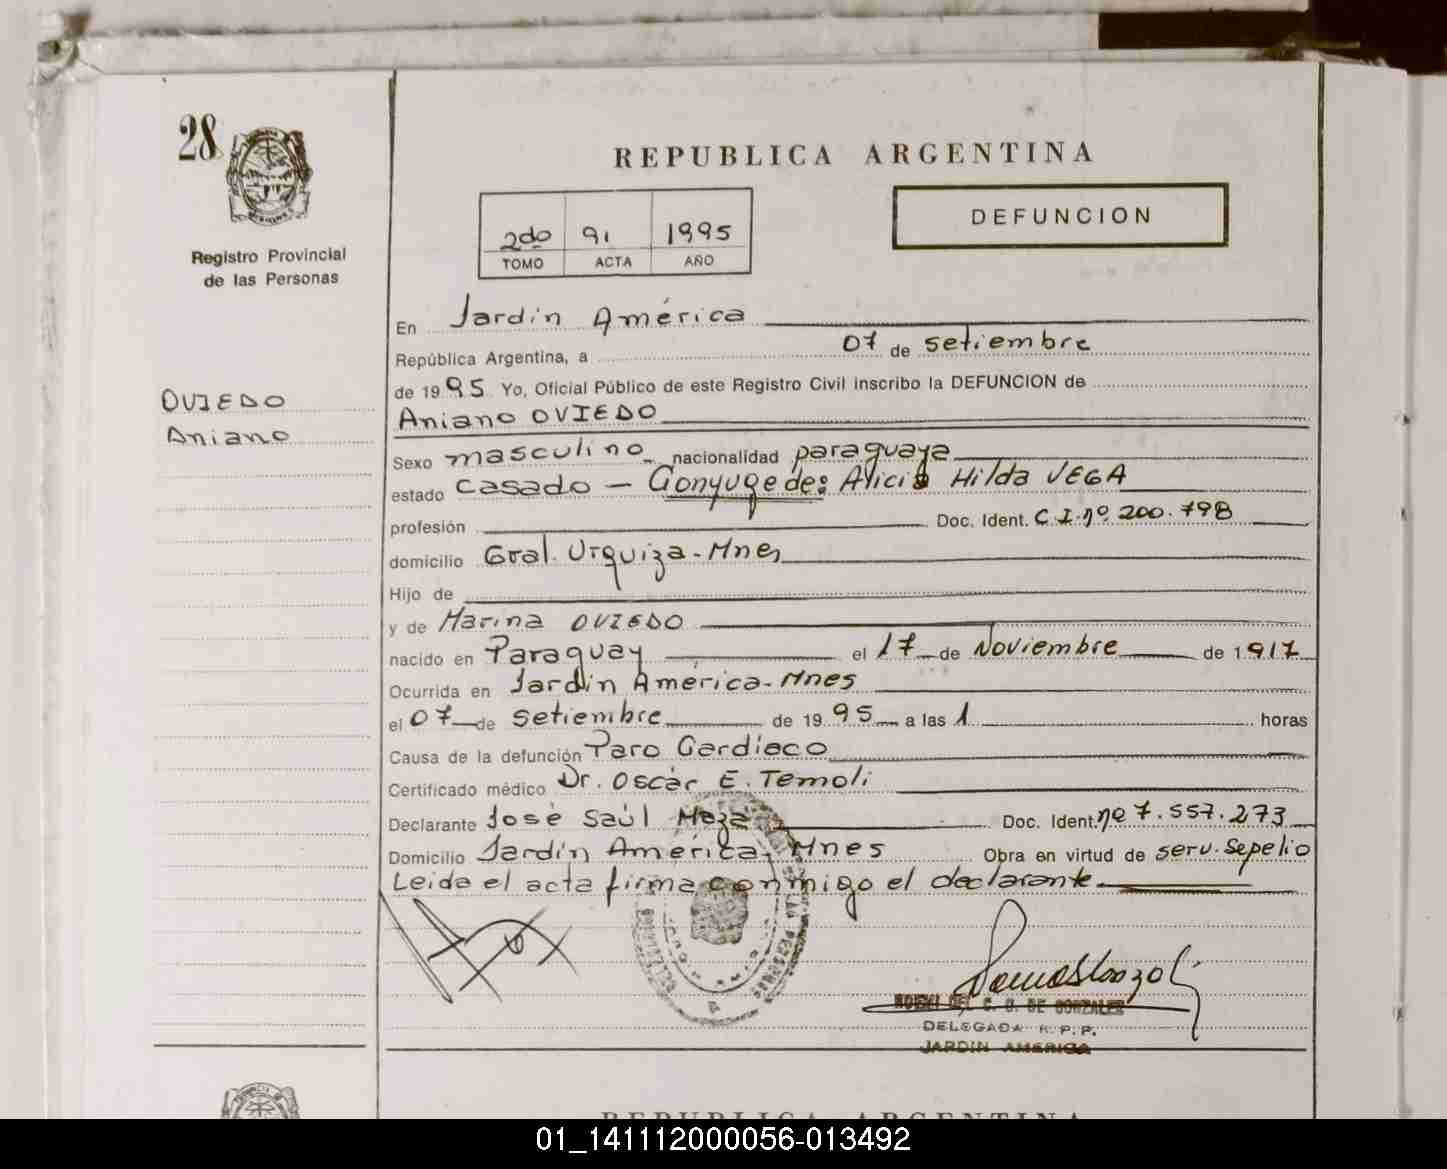 28
REPUBLICA ARGENTINA
2do 91 1995
TOMO ACTA AÑO
DEFUNCION
Registro Provincial
de las Personas
OVIEDO
Aniano
En Jardín América
República Argentina, a 07 de setiembre
de 1995 Yo, Oficial Público de este Registro Civil inscribo la DEFUNCION de
Aniano OVIEDO
Sexo masculino nacionalidad paraguaya
estado casado - Conyuge de: Alicia Hilda VEGA
profesión Doc. Ident. C.I. nº 200.798
domicilio Gral. Urquiza - Mnes
Hijo de
y de Marina OVIEDO
nacido en Paraguay el 17 de Noviembre de 1917
Ocurrida en Jardín América - Mnes
el 07 de setiembre de 1995 a las 1 horas
Causa de la defunción Paro Cardiaco
Certificado médico Dr. Oscar E. Temoli
Declarante José Saúl Meza Doc. Ident. nº 7.557.273
Domicilio Jardín América, Mnes Obra en virtud de serv. Sepelio
Leida el acta firma conmigo el declarante
NOEMI DEL C. G. DE GONZALEZ
DELEGADA R. P. P.
JARDIN AMERICA
REPUBLICA ARGENTINA
01_141112000056-013492